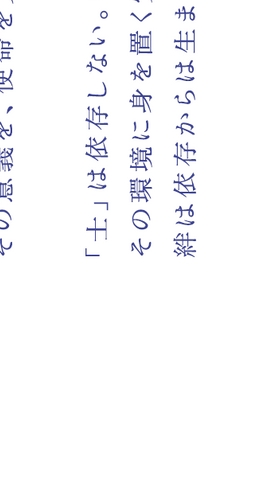 その意義を、使命を
「士」は依存しない。
その環境に身を置く
絆は依存からは生ま